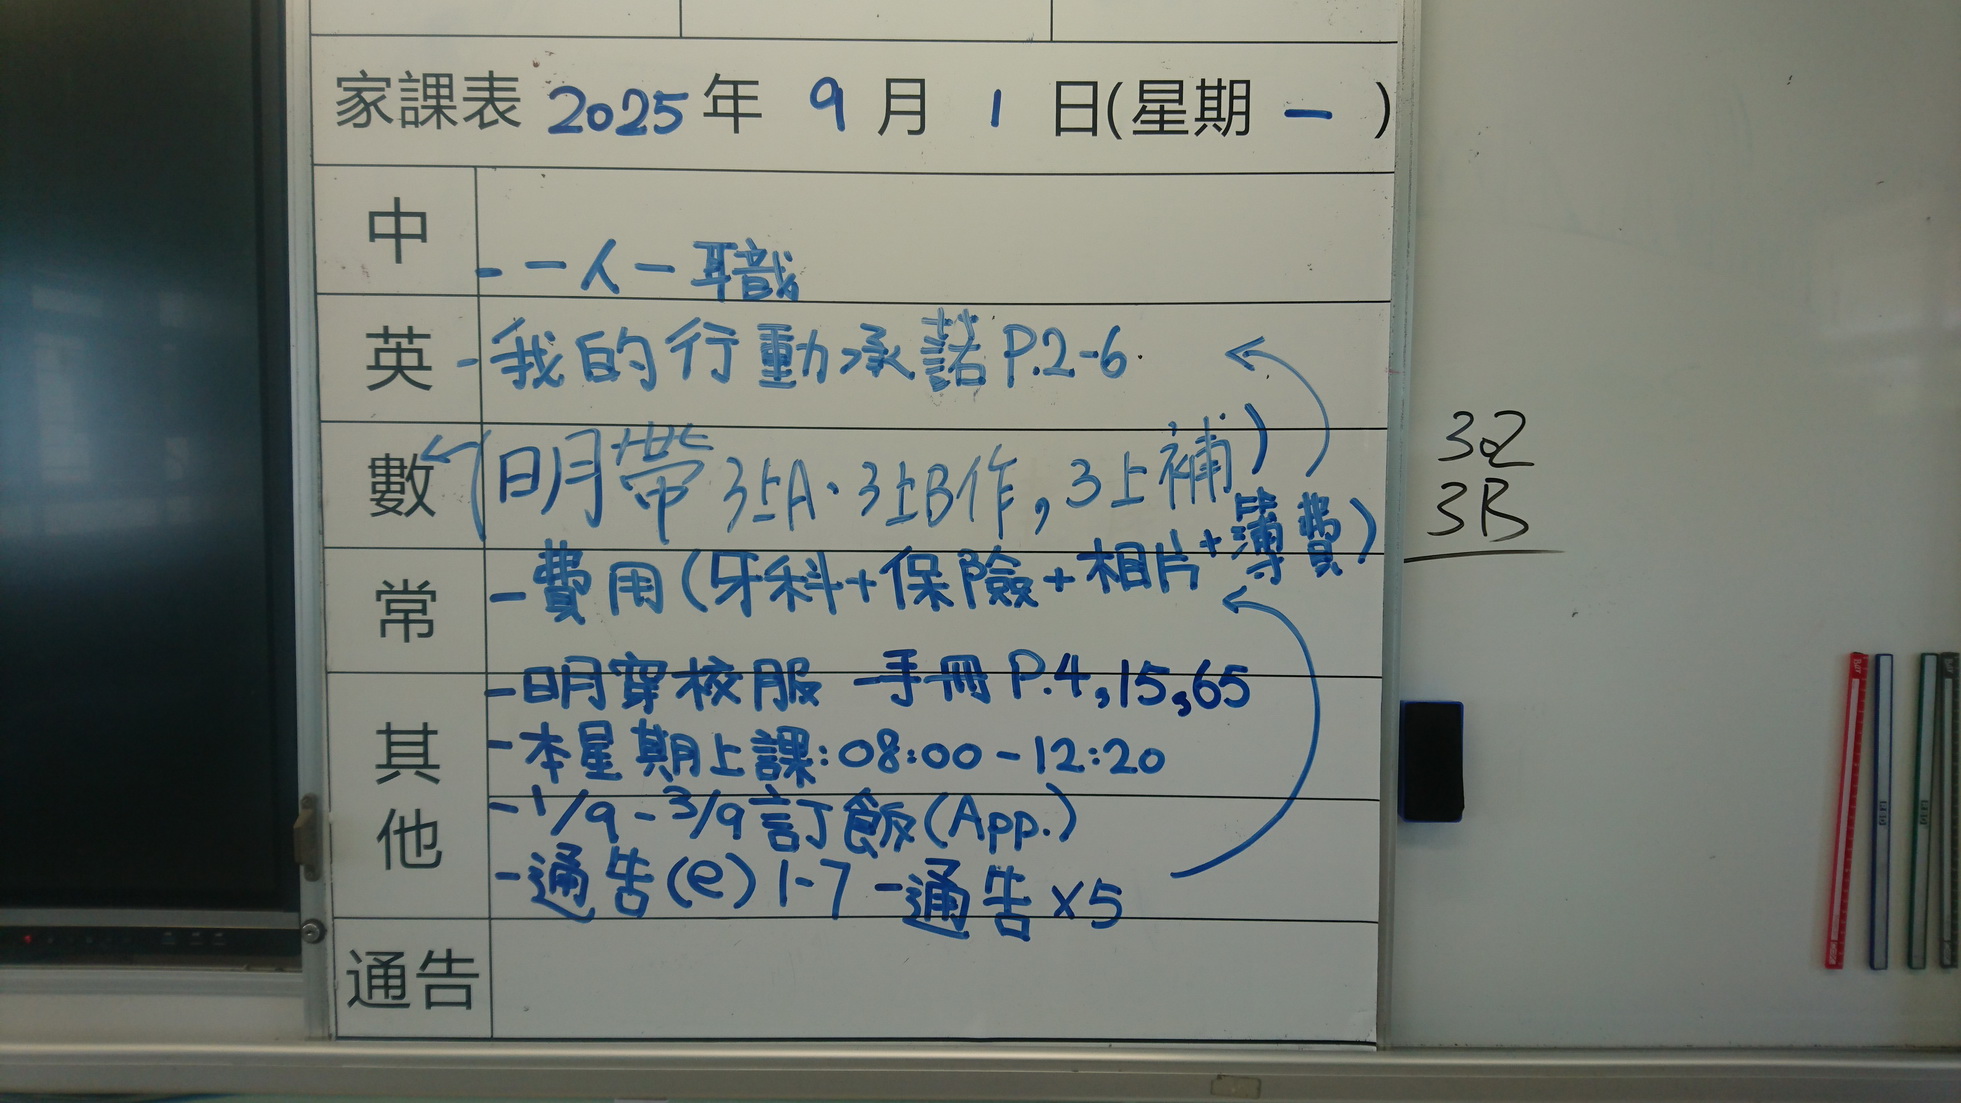 家課表 2025年 9月 1日(星期一)
中
- 一人一職
英
- 我的行動承諾 P.2-6
數
(明帶 3上A. 3上B作, 3上補)
常
- 費用(牙科+保險+相片+簿費)
其他
- 明穿校服 - 手冊 P.4,15,65
- 本星期上課:08:00-12:20
- 1/9-3/9 訂飯(App.)
- 通告(e) 1-7 - 通告x5
通告
32
3B